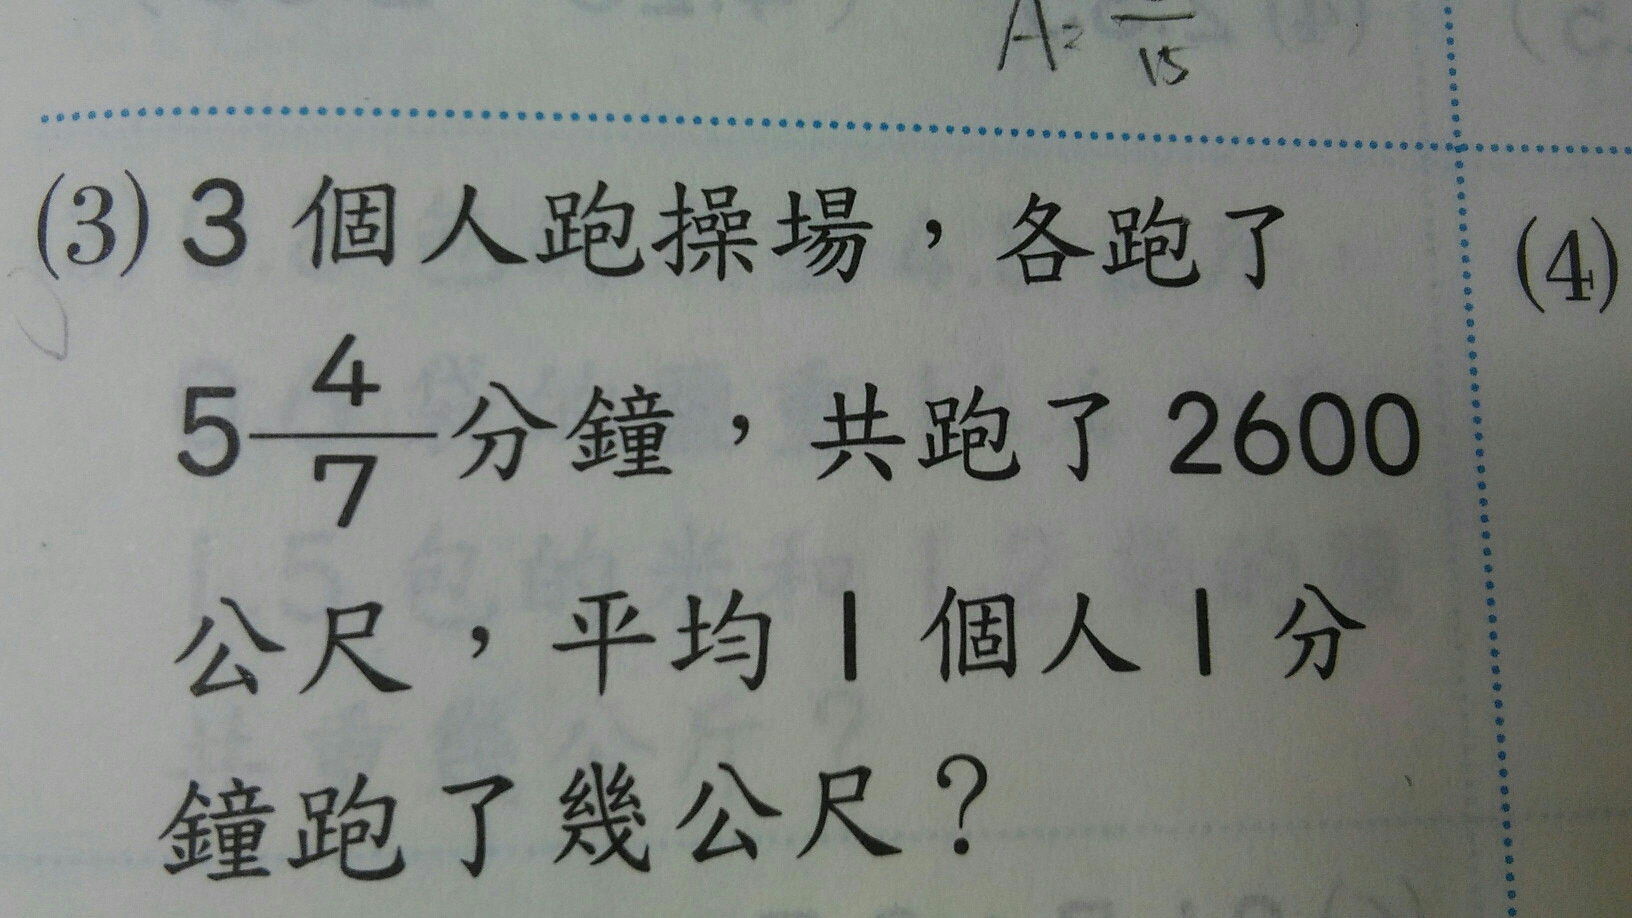 A=
15
(3) 3 個人跑操場，各跑了
5 4/7 分鐘，共跑了 2600
公尺，平均 1 個人 1 分
鐘跑了幾公尺？
(4)